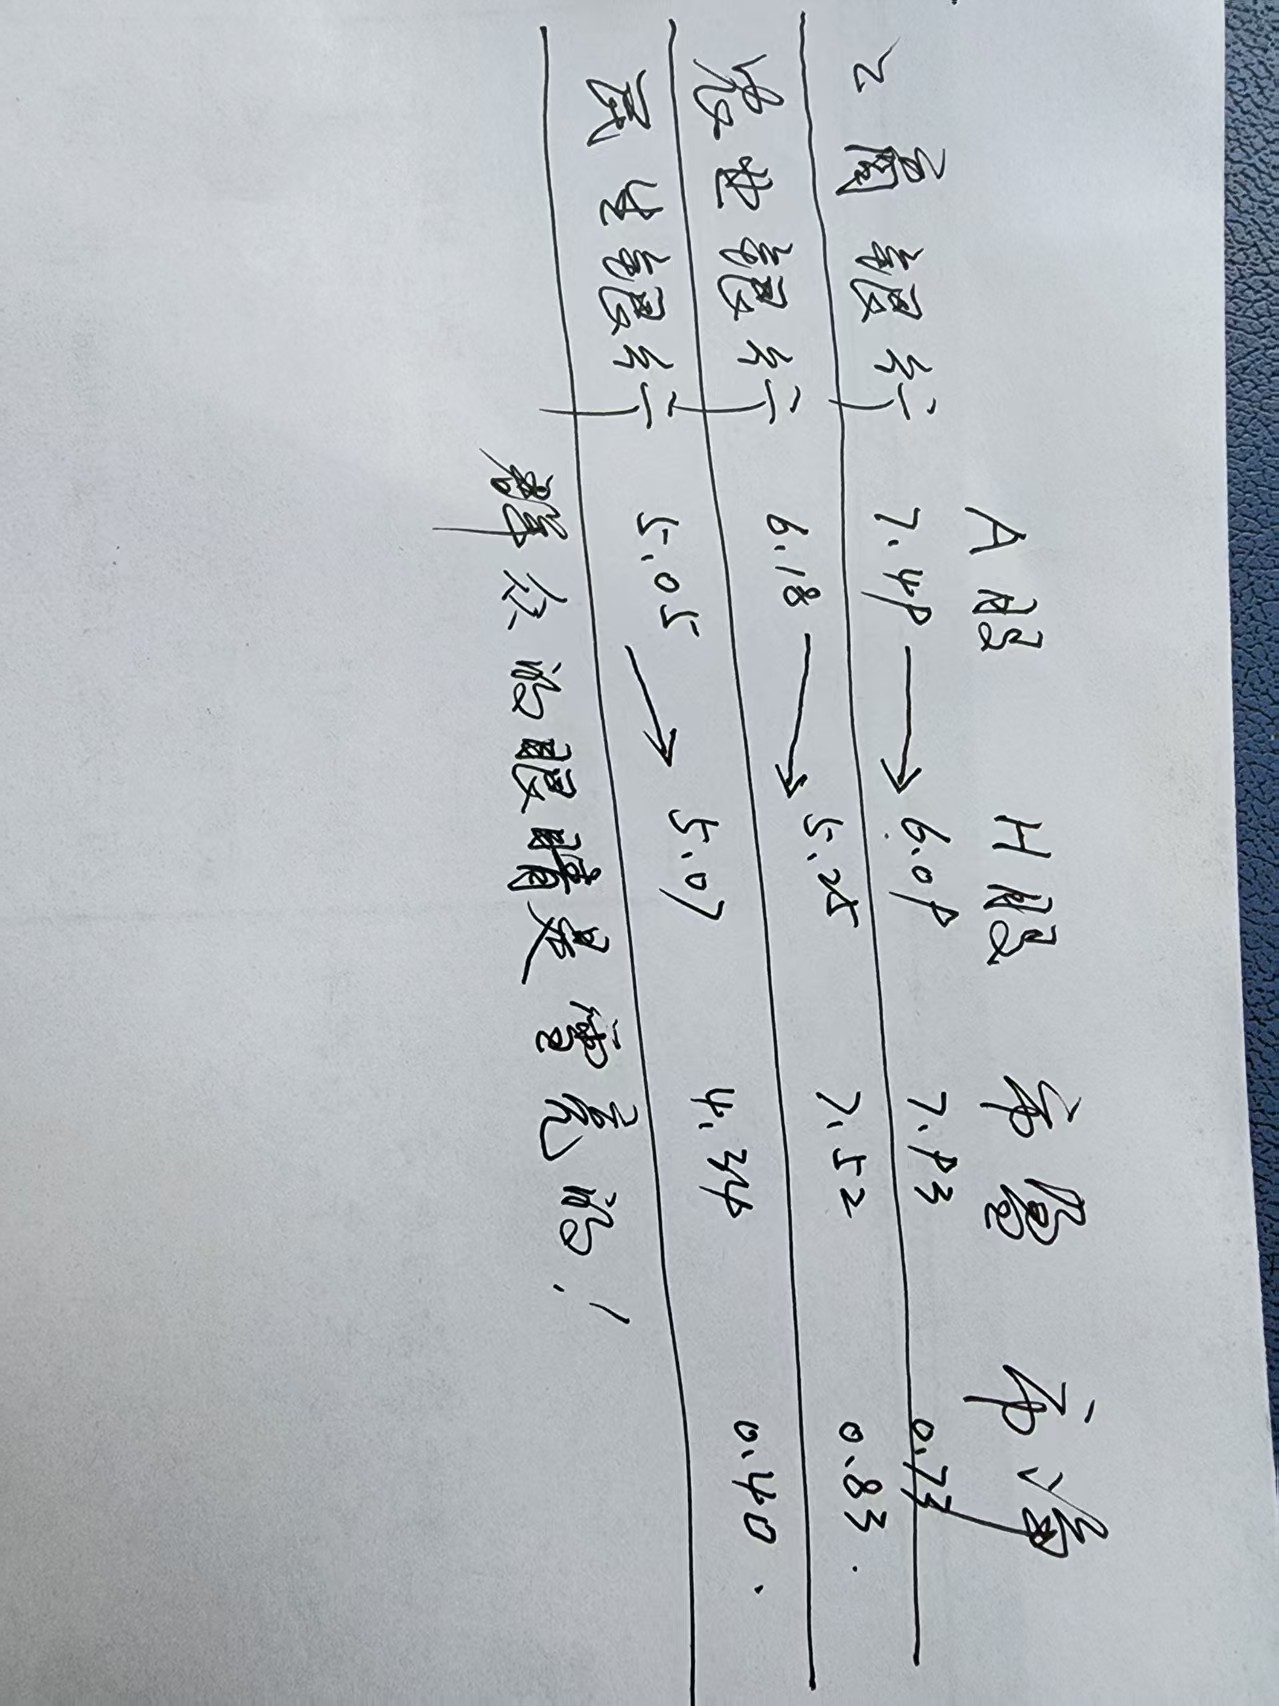 A股 H股 市盈 市净
工商银行 7.49 → 6.09 7.93 0.73
农业银行 6.18 → 5.25 7.52 0.83.
民生银行 5.05 → 5.07 4.34 0.40.
群众的眼睛是雪亮的!